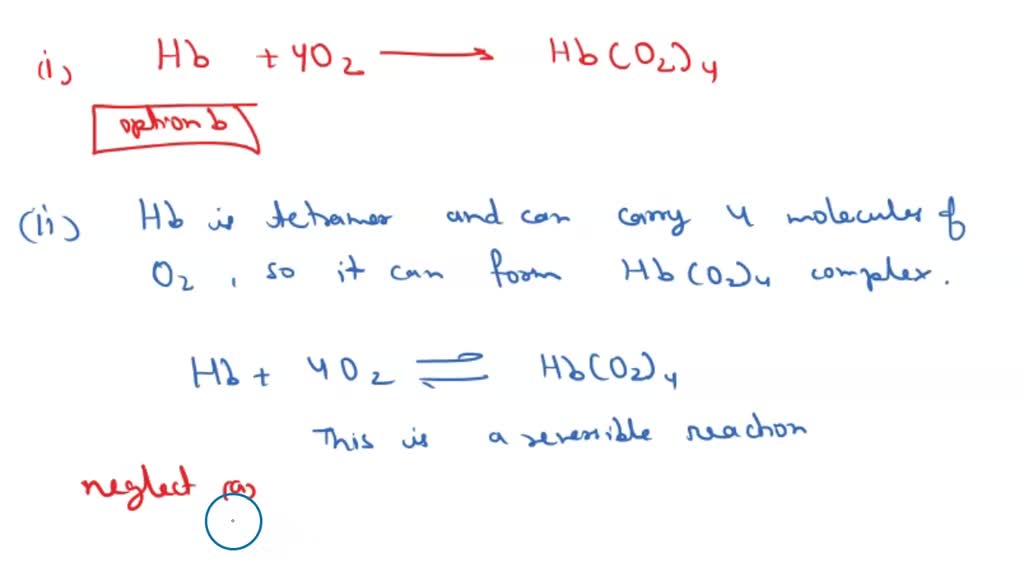 (i) Hb + 4O2 ⟶ Hb(O2)4
option b
(ii) Hb is tetramer and can carry 4 molecules of
O2, so it can form Hb(O2)4 complex.
Hb + 4O2 ⇌ Hb(O2)4
This is a reversible reaction
neglect (a)